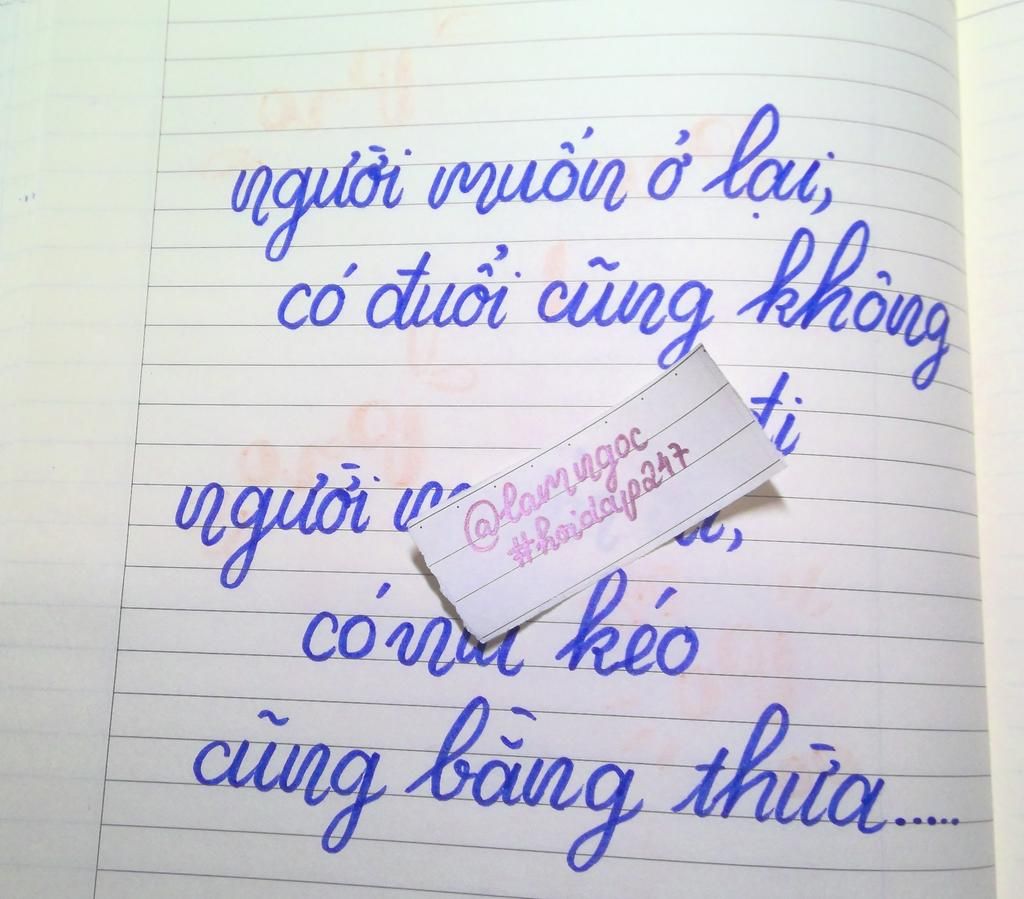 người muốn ở lại,
có đuổi cũng không
đi
người
có níu kéo
cũng bằng thừa.....
@lamngoc
#hoidap247